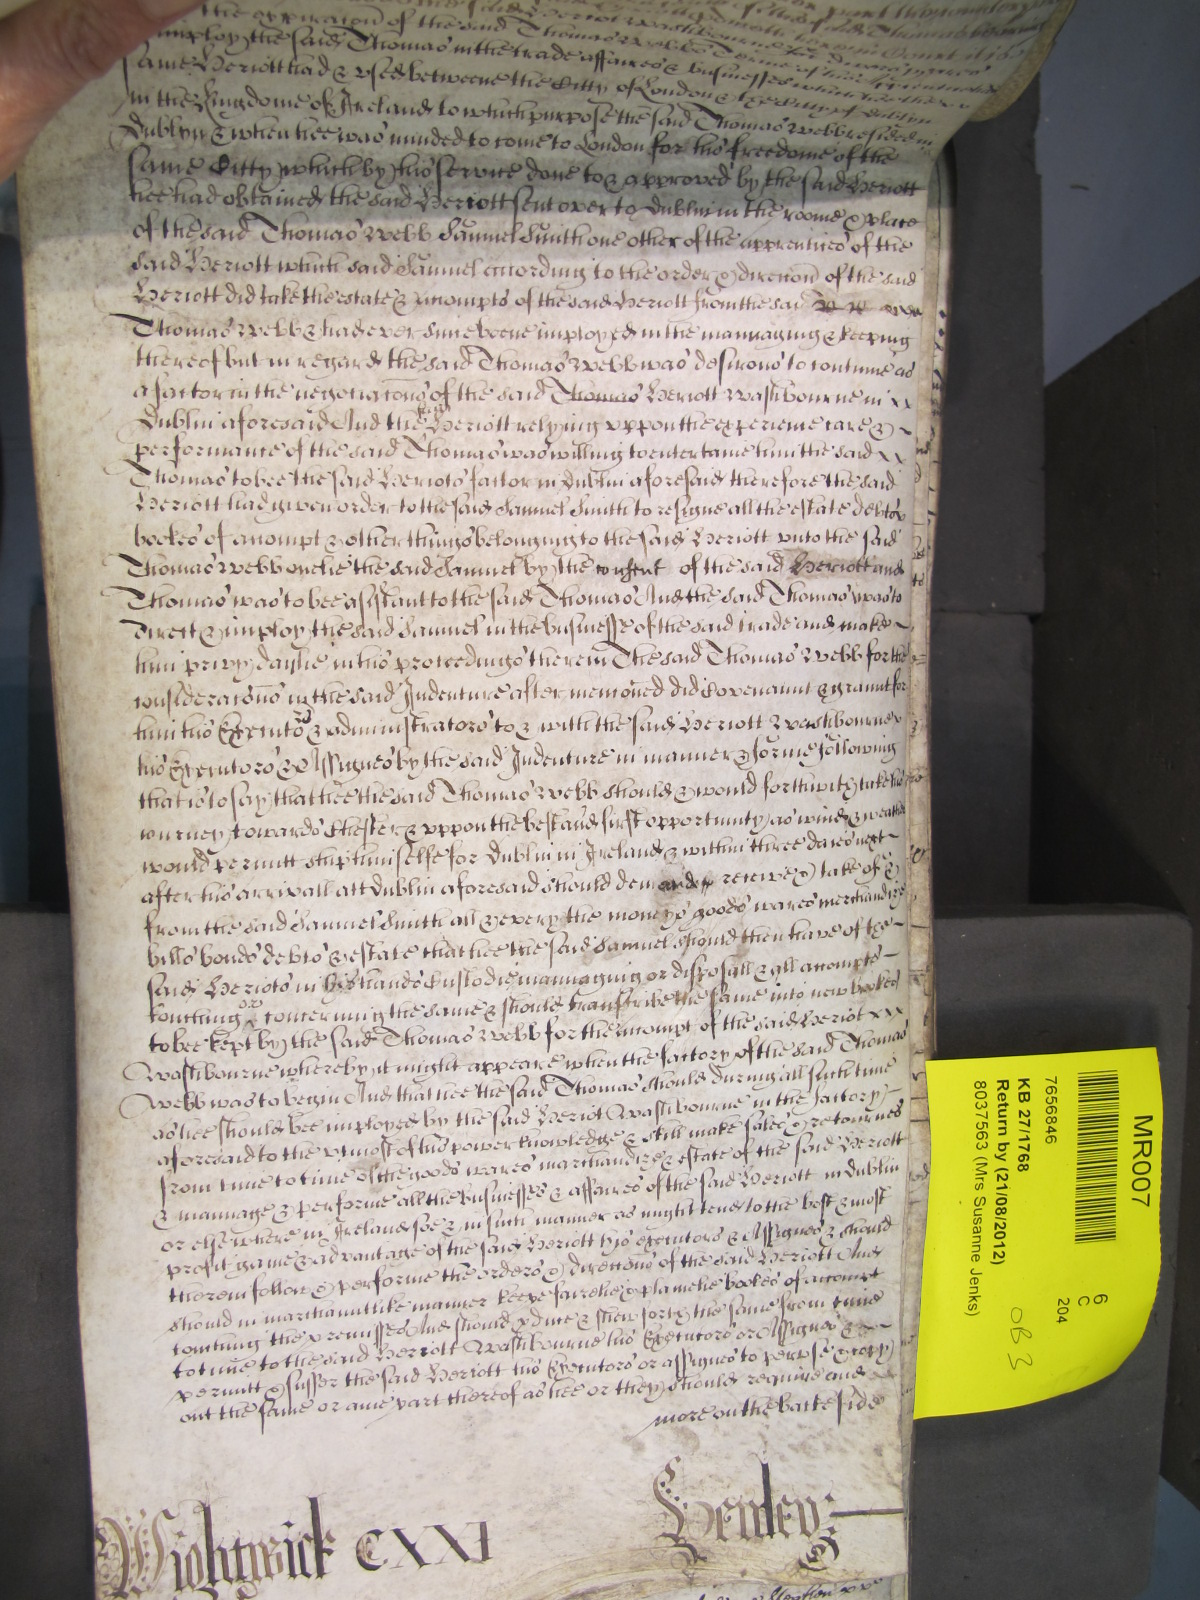 the expiracion of the said Thomas Webbs Terme of
imploy the said Thomas in the trade affaires & businesses which hee the
same Heriott had & used betweene the Citty of London & the Citty of Dublyn
in the Kingdome of Ireland to which purpose the said Thomas Webb resided in
Dublyn & when hee was minded to come to London for his freedome of the
same Citty which by his service done to & approved by the said Heriott
hee had obtained the said Heriott sent over to Dublin in the roome & place
of the said Thomas Webb Samuel Smith one other of the apprentices of the
said Heriott which said Samuel according to the order & direccion of the said
Heriott did take the estate & accompts of the said Heriott from the said
Thomas Webb & had ever since beene imployed in the mannaging & keeping
thereof but in regard the said Thomas Webb was desirous to continue as
a factor in the negotiacions of the said Thomas Heriott Washbourne in
Dublin aforesaid And the said Heriott relying uppon the experience care &
performance of the said Thomas was willing to entertaine him the said
Thomas to bee the said Heriots factor in Dublin aforesaid therefore the said
Heriott had given order to the said Samuel Smith to resigne all the estate debts
bookes of accompt & other things belonging to the said Heriott unto the said
Thomas Webb onelie the said Samuel by the consent of the said Heriott and
Thomas was to bee assistant to the said Thomas And the said Thomas was to
direct & imploy the said Samuel in the businesse of the said trade and make
him privy daylie in his proceedings therein The said Thomas Webb for the
consideracions in the said Indenture after mencioned did Covenaunt & graunt for
him his Executors & administrators to & with the said Heriott Washbourne
his Executors & Assignes by the said Indenture in manner & forme following
that is to say that hee the said Thomas Webb should & would forthwith take his
iourney towards Chester & uppon the best and first opportunity as wind & weather
would permitt ship himselfe for Dublin in Ireland & within three daies next
after his arrivall att Dublin aforesaid should demand receive & take of &
from the said Samuel Smith all & every the moneys goods wares merchandize
bills bonds debts & estate that hee the said Samuel should then have of the
said Heriots in his hands Custodie mannaging or disposall & all accompts
touching or concerning the same & should transcribe the same into new bookes
to bee kept by the said Thomas Webb for the accompt of the said Heriot
Washbourne whereby it might appeare when the factory of the said Thomas
Webb was to begin And that hee the said Thomas should during all such time
as hee should bee imployed by the said Heriot Washbourne in the factory
aforesaid to the utmost of his power knowledge & skill make sales & retournes
from time to time of the goods wares marchandize & estate of the said Heriott
& mannage & performe all the businesses & affaires of the said Heriott in Dublin
or elsewhere in Ireland soe & in such manner as might tend to the best & most
profit gaine & advantage of the said Heriott his executors & Assignes & should
therein follow & performe the orders & direccions of the said Heriott And
should in marchauntlike manner keepe fairelie & plainelie bookes of accompt
touching the premisses And should & shew forth the same from time
to time to the said Heriott Washbourne his Executors or Assignes &
permitt & suffer the said Heriott his Executors or assignes to peruse & coppy
out the same or anie part thereof as hee or they should require and
more on the backe side
Wightwick CXXI Henley
MR007
7656846
6
C
204
KB 27/1768
Return by (21/08/2012)
8037563 (Mrs Susanne Jenks)
OB 3